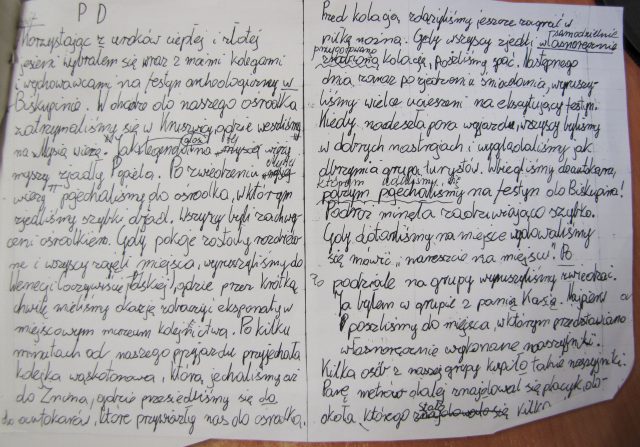 PD
Korzystając z uroków ciepłej i złotej
jesieni wybrałem się wraz z moimi kolegami
i wychowawcami na festyn archeologiczny w
Biskupinie. W drodze do naszego ośrodka
zatrzymaliśmy się w Kruszwicy, gdzie weszliśmy
na "Mysią wieżę". Jak legenda
głosi
na
wieży
myszy zjadły Popiela. Po zwiedzeniu
wieży pojechaliśmy do ośrodka, w którym
zjedliśmy szybki obiad. Wszyscy byli zachwy-
ceni ośrodkiem. Gdy pokoje zostały rozdzielo-
ne i wszyscy zajęli miejsca, wyruszyliśmy do
Wenecji (oczywiście Polskiej), gdzie przez krótką
chwilę mieliśmy okazję zobaczyć eksponaty w
miejscowym muzeum kolejnictwa. Po kilku
minutach od naszego przyjazdu przyjechała
kolejka wąskotorowa, którą jechaliśmy aż
do Żnina, gdzie przesiedliśmy się do
do autokarów, które przywiozły nas do ośrodka.
Przed kolacją zdążyliśmy jeszcze zagrać w
piłkę nożną. Gdy wszyscy zjedli
samodzielnie
własnoręcznie
przygotowaną
zrobioną kolację, poszliśmy spać. Następnego
dnia zaraz po zjedzeniu śniadania, wyruszy-
liśmy wielce ucieszeni na ekscytujący festyn.
Kiedy nadeszła pora wyjazdu, wszyscy byliśmy
w dobrych nastrojach i wyglądaliśmy jak
olbrzymia grupa turystów. Wbiegliśmy do autokaru,
którym udaliśmy się
potrzym pojechaliśmy na festyn do Biskupina!
Podróż minęła zadziwiająco szybko.
Gdy dotarliśmy na miejsce wydawaliśmy
się mówić "nareszcie na miejscu". Po
podziale na grupy wyruszyliśmy zwiedzać.
Ja byłem w grupie z panią Kasią. Najpierw
poszliśmy do miejsca, w którym przedstawiano
własnoręcznie wykonane naszyjniki.
Kilka osób z naszej grupy kupiło takie naszyjniki.
Parę metrów dalej znajdował się placyk, do-
okoła którego
stało
znajdowało się kilka